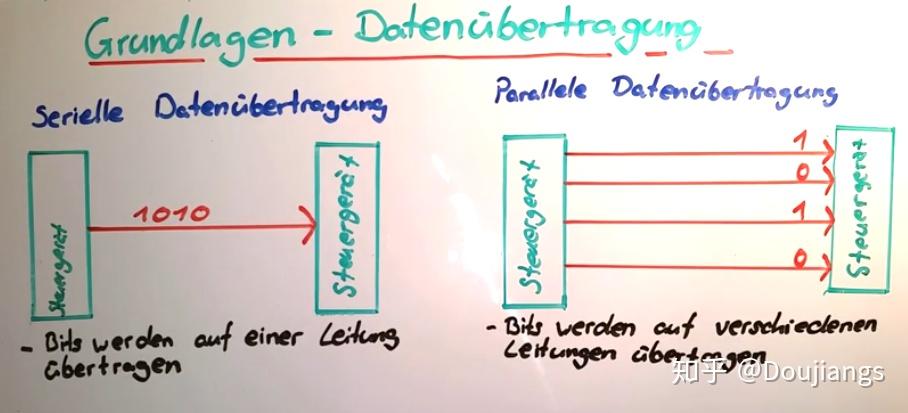 Grundlagen - Datenübertragung
Serielle Datenübertragung
Steuergerät
1010
Steuergerät
- Bits werden auf einer Leitung
übertragen
Parallele Datenübertragung
Steuergerät
1
0
1
0
Steuergerät
- Bits werden auf verschiedenen
Leitungen übertragen
知乎 @Doujiangs